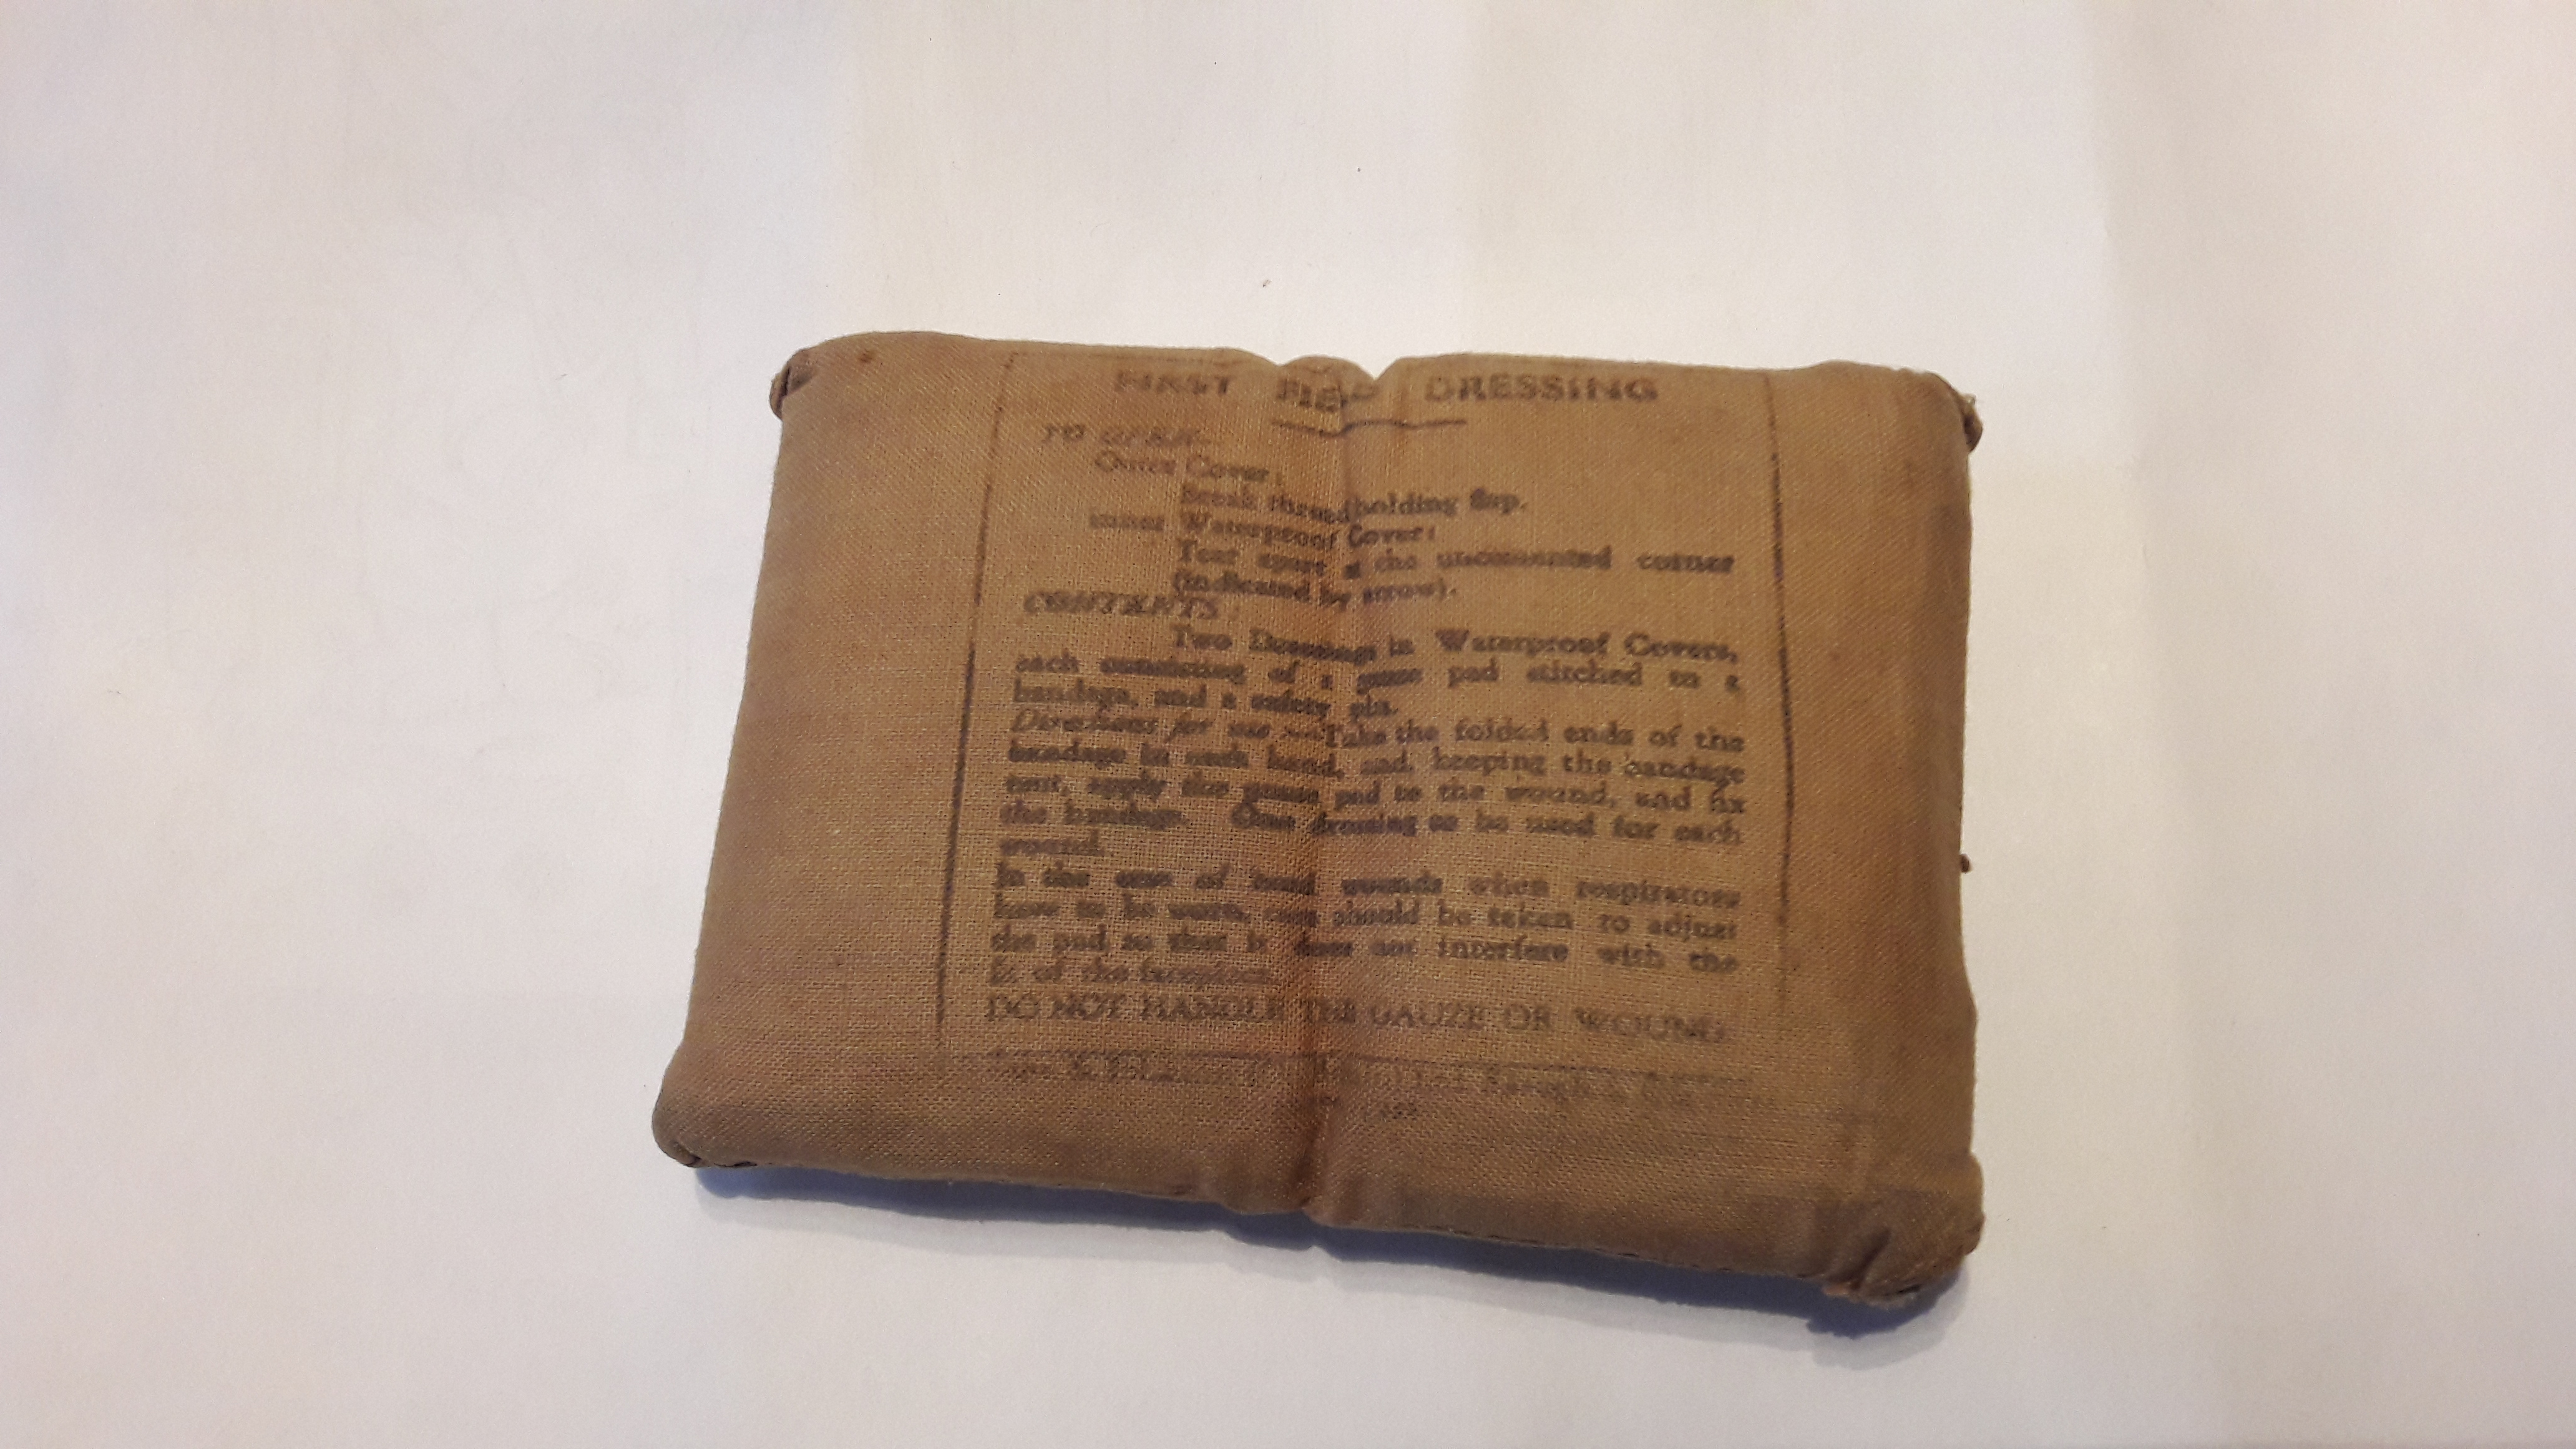 FIRST FIELD DRESSING
TO OPEN—
Outer Cover:
Break thread holding flap.
Inner Waterproof Cover:
Tear apart at the uncemented corner
(indicated by arrow).
CONTENTS:
Two Dressings in Waterproof Covers,
each consisting of a gauze pad stitched to a
bandage, and a safety pin.
Directions for use :—Take the folded ends of the
bandage in each hand, and, keeping the bandage
taut, apply the gauze pad to the wound, and fix
the bandage. One dressing to be used for each
wound.
In the case of head wounds when respirators
have to be worn, care should be taken to adjust
the pad so that it does not interfere with the
fit of the facepiece.
DO NOT HANDLE THE GAUZE OR WOUND.